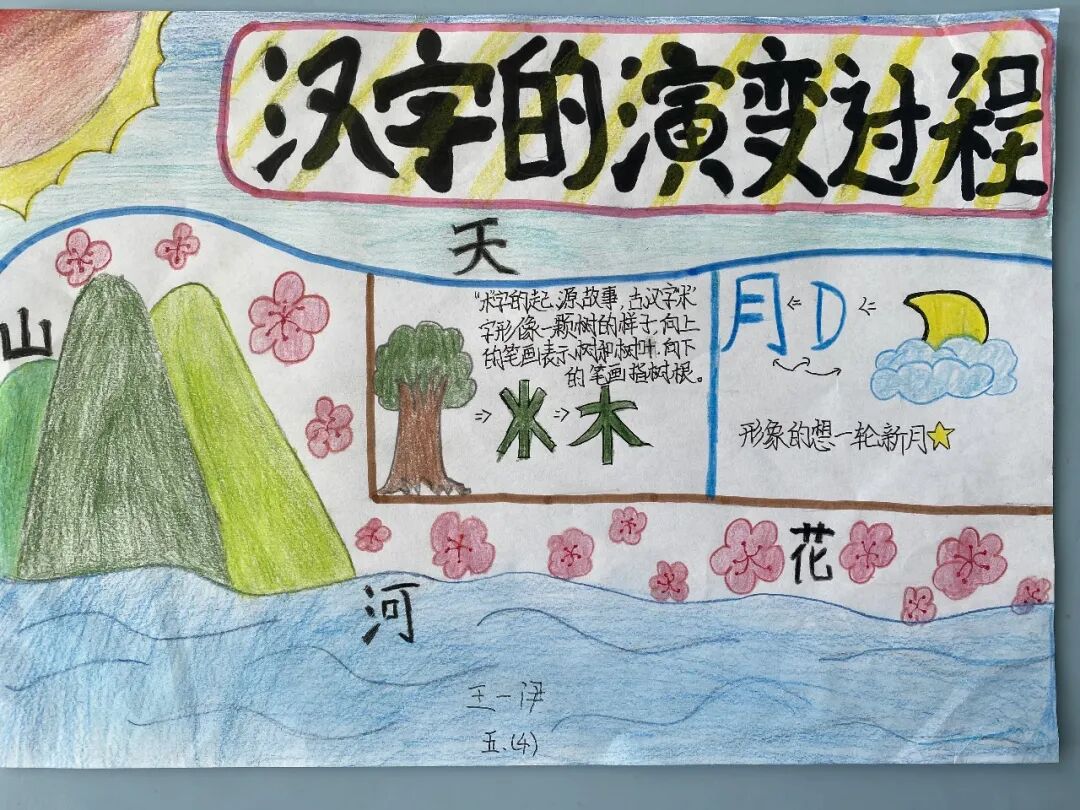 汉字的演变过程
天
山
"木"字的起源故事，古汉字"木"
字形像一颗树的样子，向上
的笔画表示树和树叶，向下
的笔画指树根。
木
月
D
形象的想一轮新月
花
河
王一
五.(4)